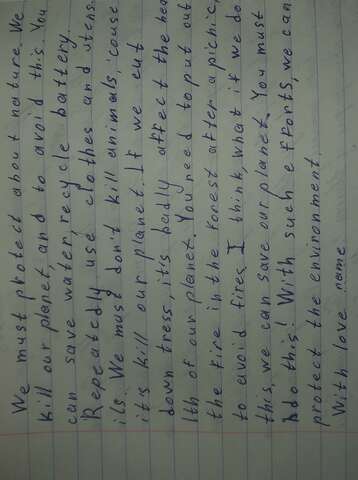 We must protect about nature. We
kill our planet, and to avoid this. You
can save water, recycle battery.
Repeatedly use clothes and utens
ils. We must don't kill animals, couse
it is kill our planet. If we cut
down tress, it is badly affect the hea
lth of our planet. You need to put out
the fire in the forest after a pichic,
to avoid fires. I think, what if we do
this, we can save our planet. You must
do this! With such efforts, we can
protect the environment.
With love name